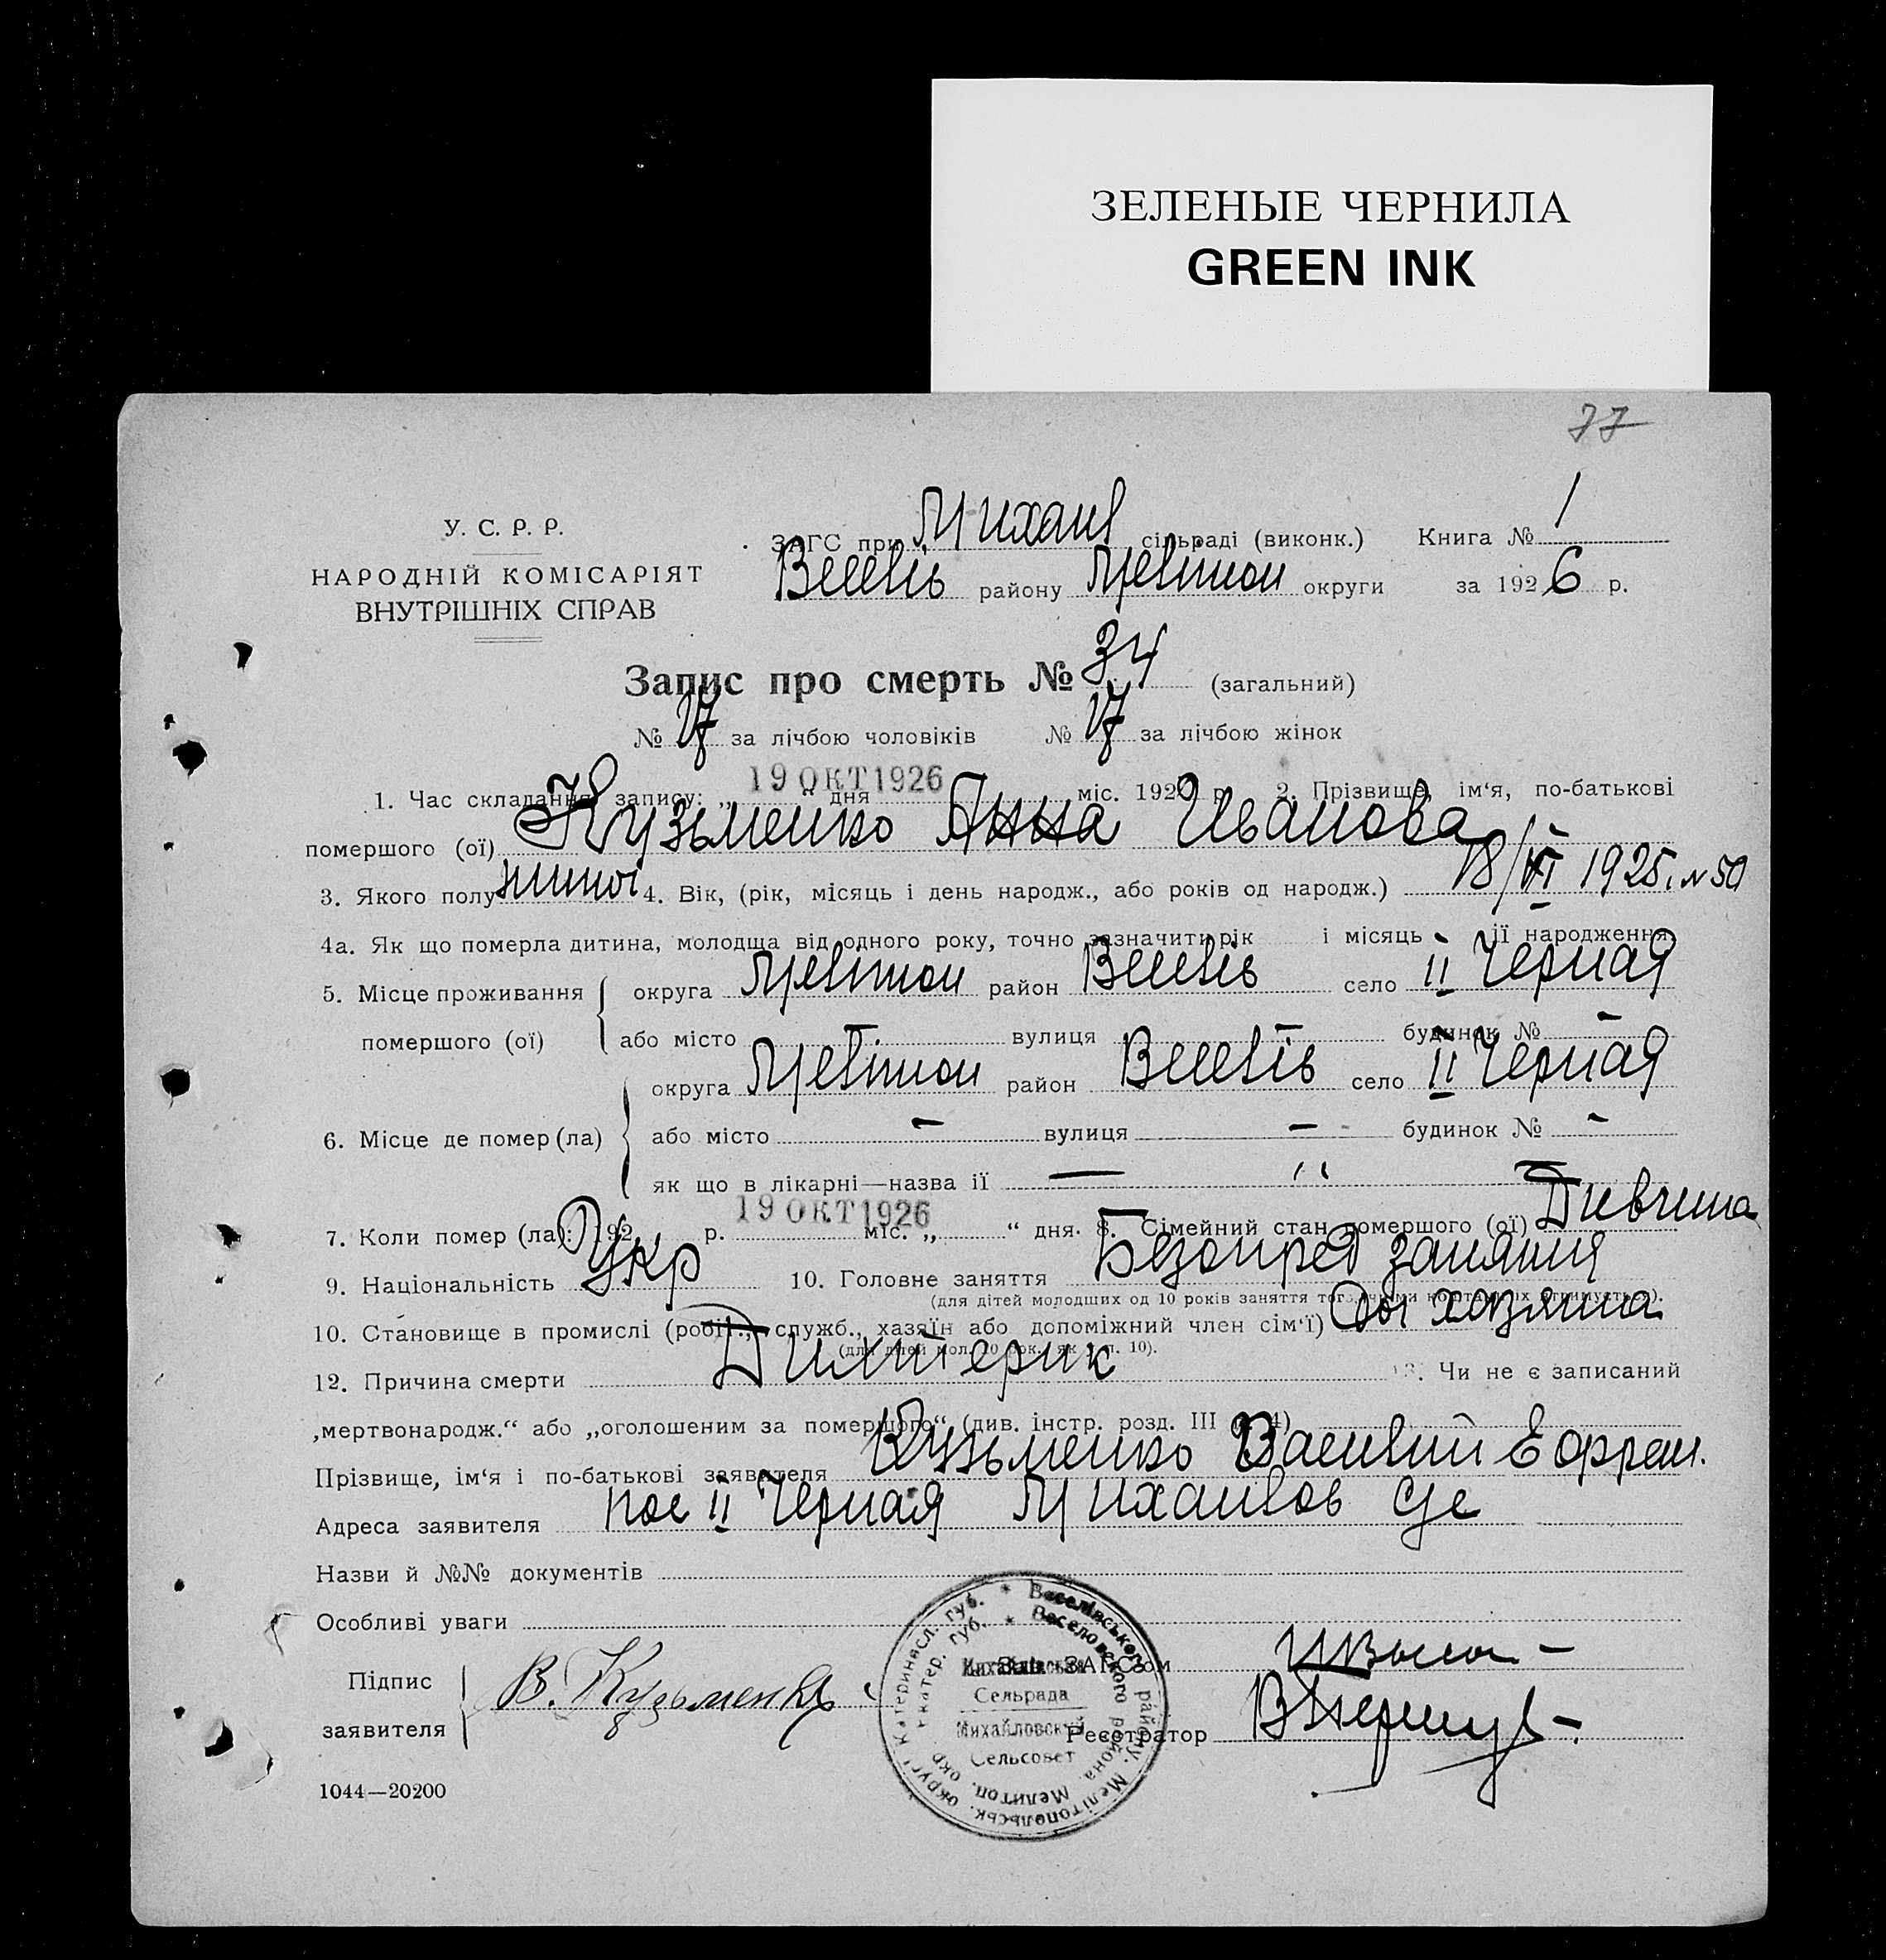 ЗЕЛЕНЫЕ ЧЕРНИЛА
GREEN INK
77
У. С. Р. Р.
НАРОДНІЙ КОМІСАРІЯТ
ВНУТРІШНІХ СПРАВ
ЗАГС при Михайл сільраді (виконк.) Книга № 1
Веселів району Мелітоп округи за 1926 р.
Запис про смерть № 34 (загальний)
№ 17 за лічбою чоловіків № 17 за лічбою жінок
1. Час складання запису: „ “ дня 19 ОКТ 1926 міс. 192 р. 2. Прізвище, ім‘я, по-батькові
помершого (ої) Кузьменко Анна Иванова
3. Якого полу 4. Вік, (рік, місяць і день народж., або років од народж.) 18/VI 1925. № 50
4а. Як що померла дитина, молодща від одного року, точно зазначити рік і місяць її народження
5. Місце проживання помершого (ої) округа Мелітоп район Веселів село II Черная
або місто — вулиця — будинок № —
6. Місце де помер (ла) округа Мелітоп район Веселів село II Черная
або місто — вулиця — будинок № —
як що в лікарні—назва ії — „ —
7. Коли помер (ла): 192 р. 19 ОКТ 1926 міс. „ “ дня. 8. Сімейний стан помершого (ої) Дивчина
9. Національність Укр 10. Головне заняття Безопред заняття
(для дітей молодших од 10 років заняття того, чиїми коштами їх утримується).
10. Становище в промислі (робіт., служб., хазяїн або допоміжний член сім‘ї) хазяина
(для дітей мол. 10 рок. як в п. 10).
12. Причина смерти Димтерик 13. Чи не є записаний
„мертвонародж.“ або „оголошеним за помершого“ (див. інстр. розд. III п. 4)
Прізвище, ім‘я і по-батькові заявителя Кузьменко Василий Ефрем.
Адреса заявителя пос II Черная Михайлов с/с
Назви й №№ документів
Особливі уваги
Підпис заявителя В. Кузьменко
Зав. ЗАГС‘ом
Реєстратор
Веселівського району, Мелітопольськ. округи Катеринасл. губ.
Веселовского района Мелитоп. окр. Екатер. губ.
Михайлівська
Сельрада
Михайловский
Сельсовет
1044—20200